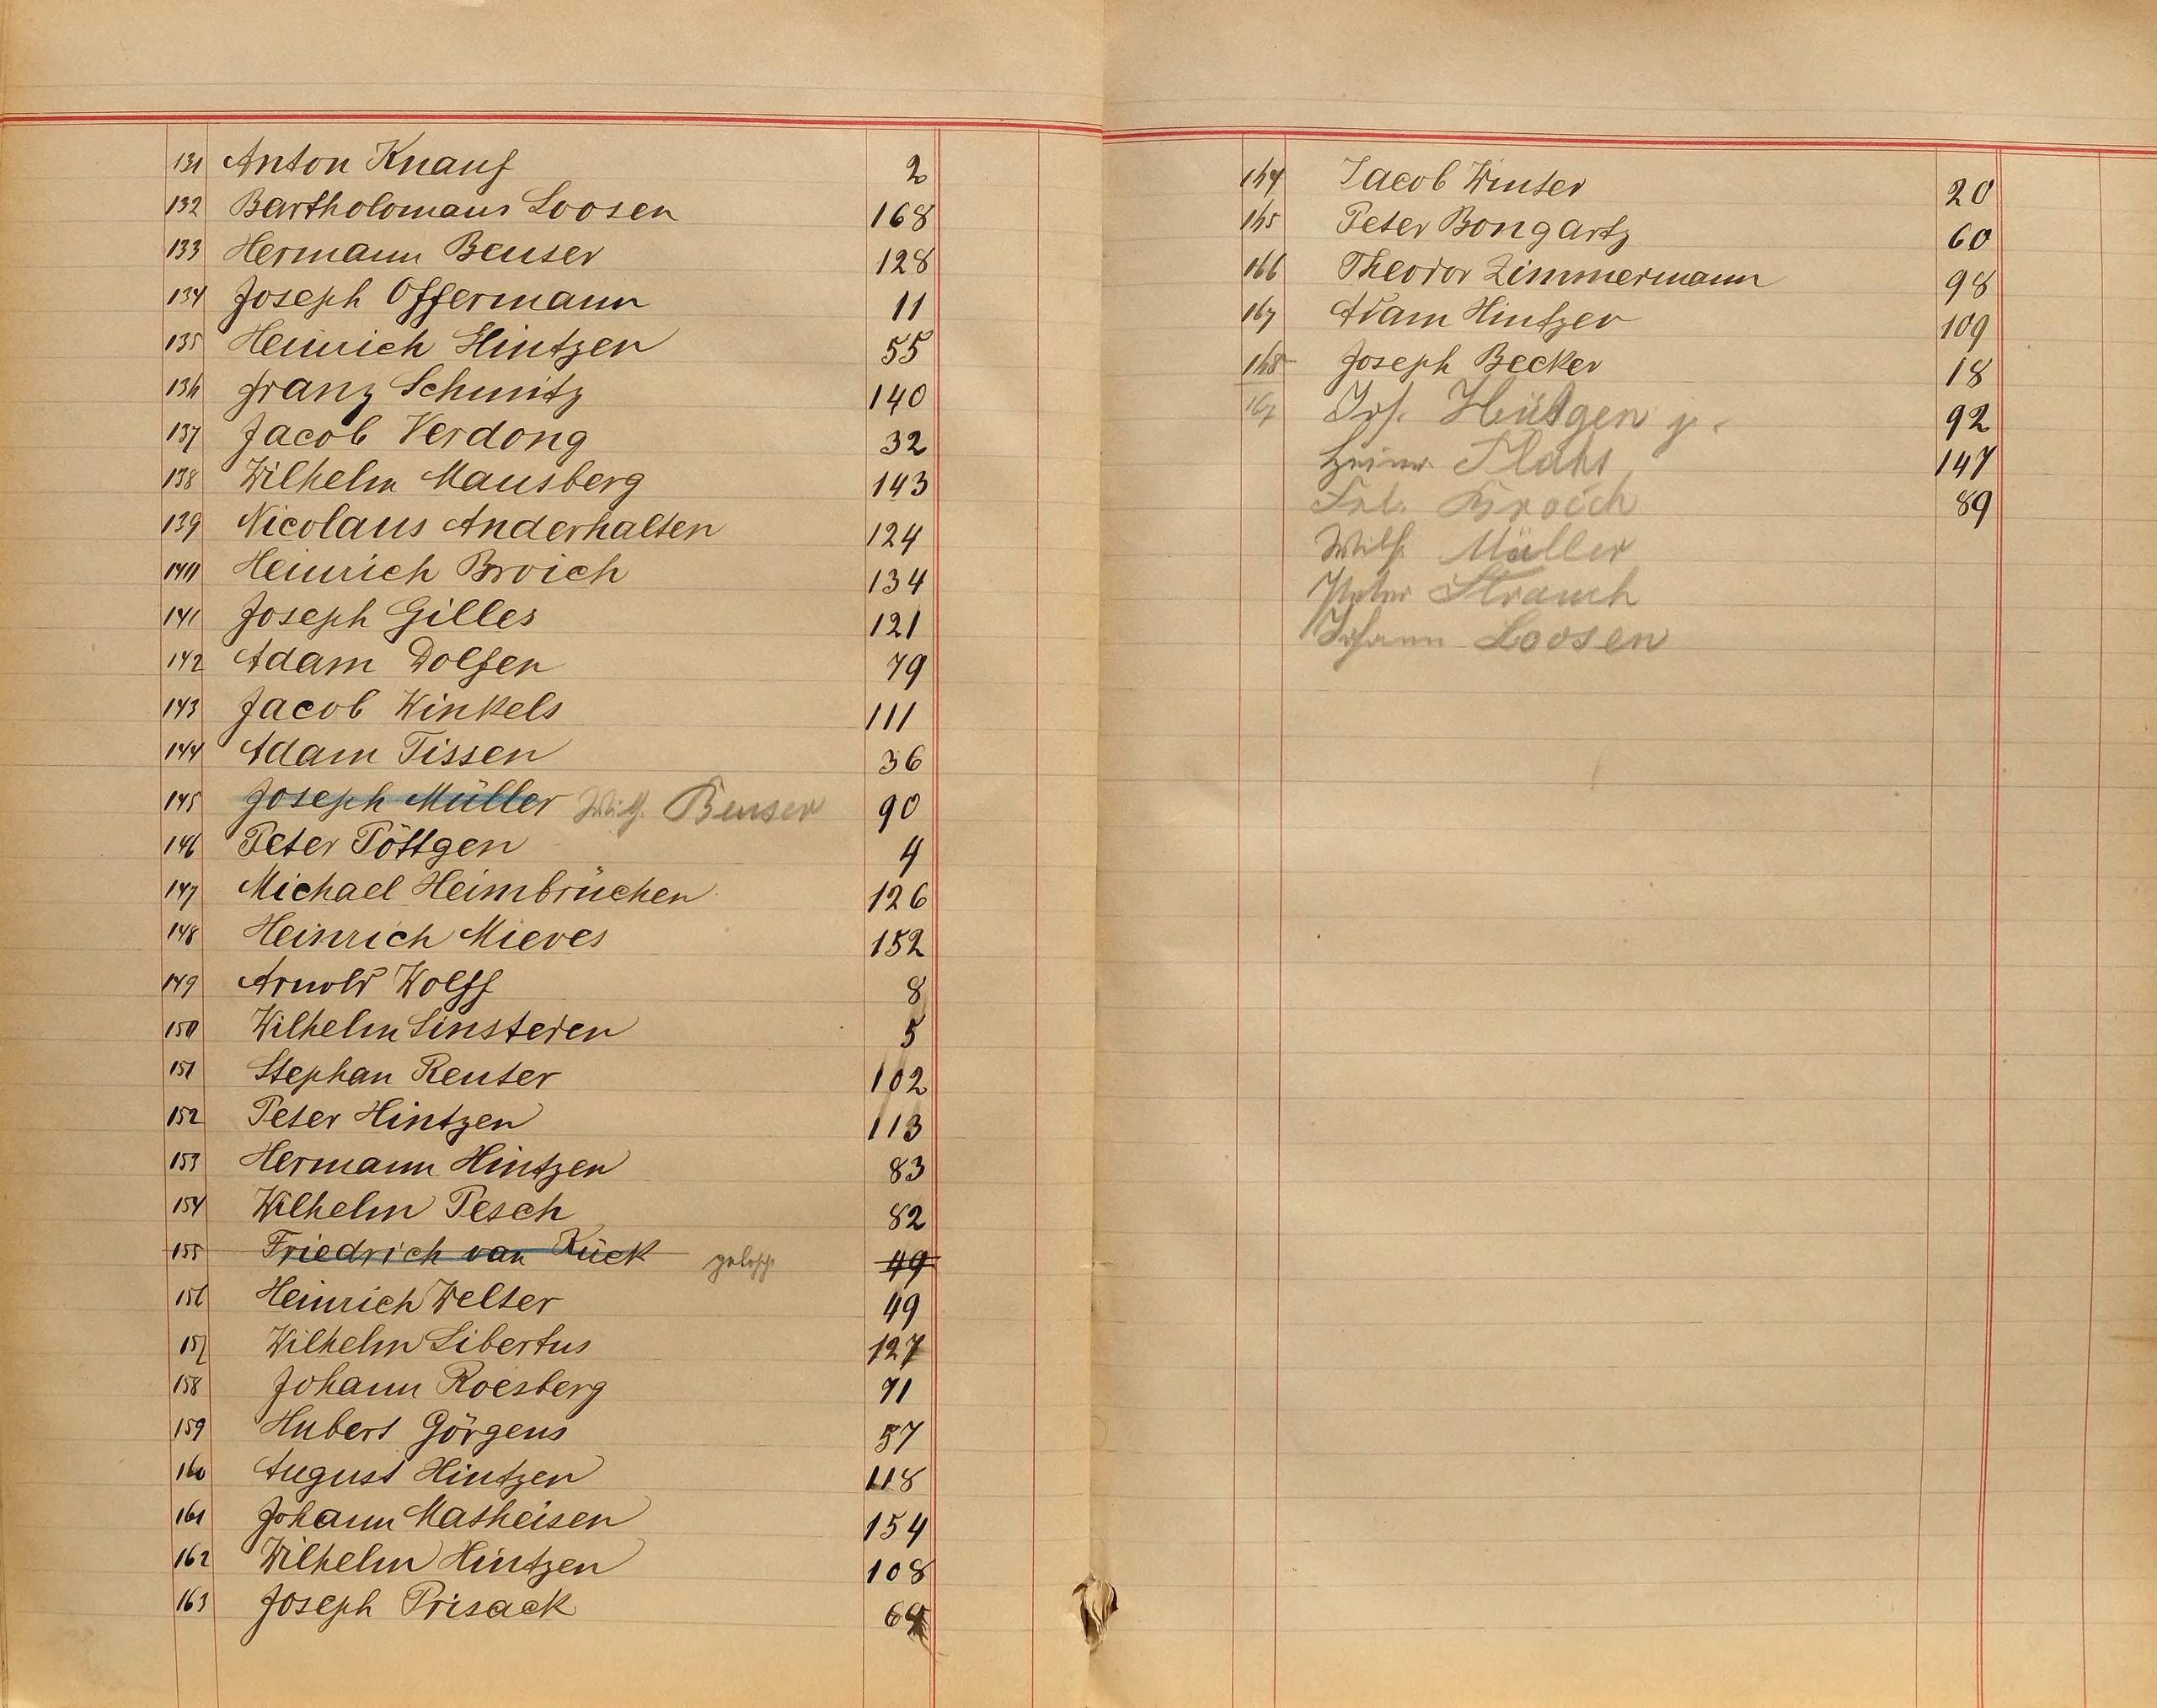 131 Anton Knauf 2
132 Bartholomaus Loosen 168
133 Hermann Beuser 128
134 Joseph Offermann 11
135 Heinrich Hintzen 55
136 Franz Schmitz 140
137 Jacob Verdong 32
138 Wilhelm Mausberg 143
139 Nicolaus Anderhalten 124
140 Heinrich Broich 134
141 Joseph Gilles 121
142 Adam Dolfen 79
143 Jacob Winkels 111
144 Adam Tissen 36
145 Joseph Müller Wilh. Beuser 90
146 Peter Pöttgen 4
147 Michael Heimbrüchen 126
148 Heinrich Mieves 152
149 Arnold Wolff 8
150 Wilhelm Linsteden 5
151 Stephan Reuter 102
152 Peter Hintzen 113
153 Hermann Hintzen 83
154 Wilhelm Pesch 82
155 Friedrich van Kück 49
156 Heinrich Welter 49
157 Wilhelm Libertus 127
158 Johann Roesberg 71
159 Hubert Görgens 57
160 August Hintzen 118
161 Johann Matheisen 154
162 Wilhelm Hintzen 108
163 Joseph Prisack
164 Jacob Winter 20
165 Peter Bongartz 60
166 Theodor Zimmermann 98
167 Adam Hintzen 109
168 Joseph Becker 18
Jos. Hütgen 92
Heinr. 147
Broich 89
Wilh. Müller
Peter Strauch
Johann Loosen